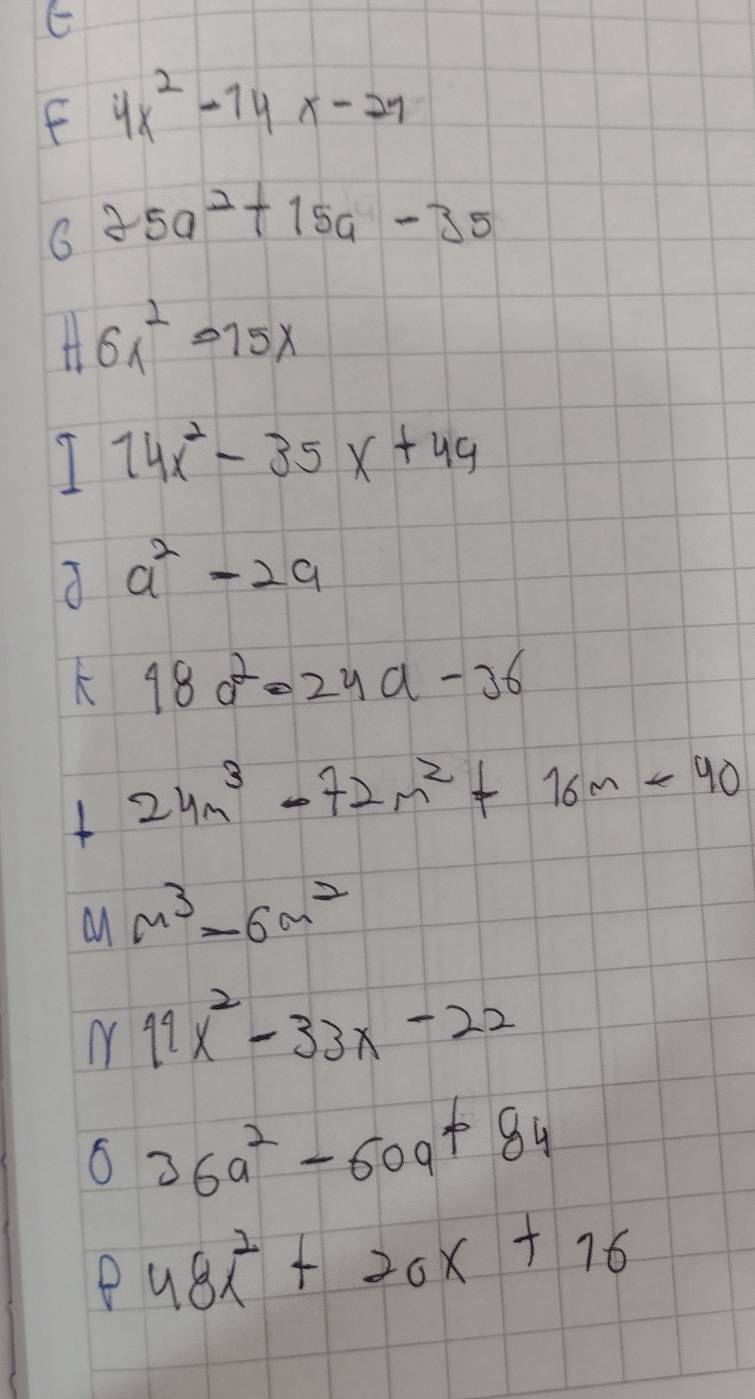 E
F 4x² - 14x - 21
G 25a² + 15a - 35
H 6x² - 15x
I 14x² - 35x + 49
J a² - 2a
K 18a² - 24a - 36
L 24m³ - 72m² + 16m - 40
M m³ - 6m²
N 11x² - 33x - 22
O 36a² - 60a + 84
P 48x² + 20x + 16